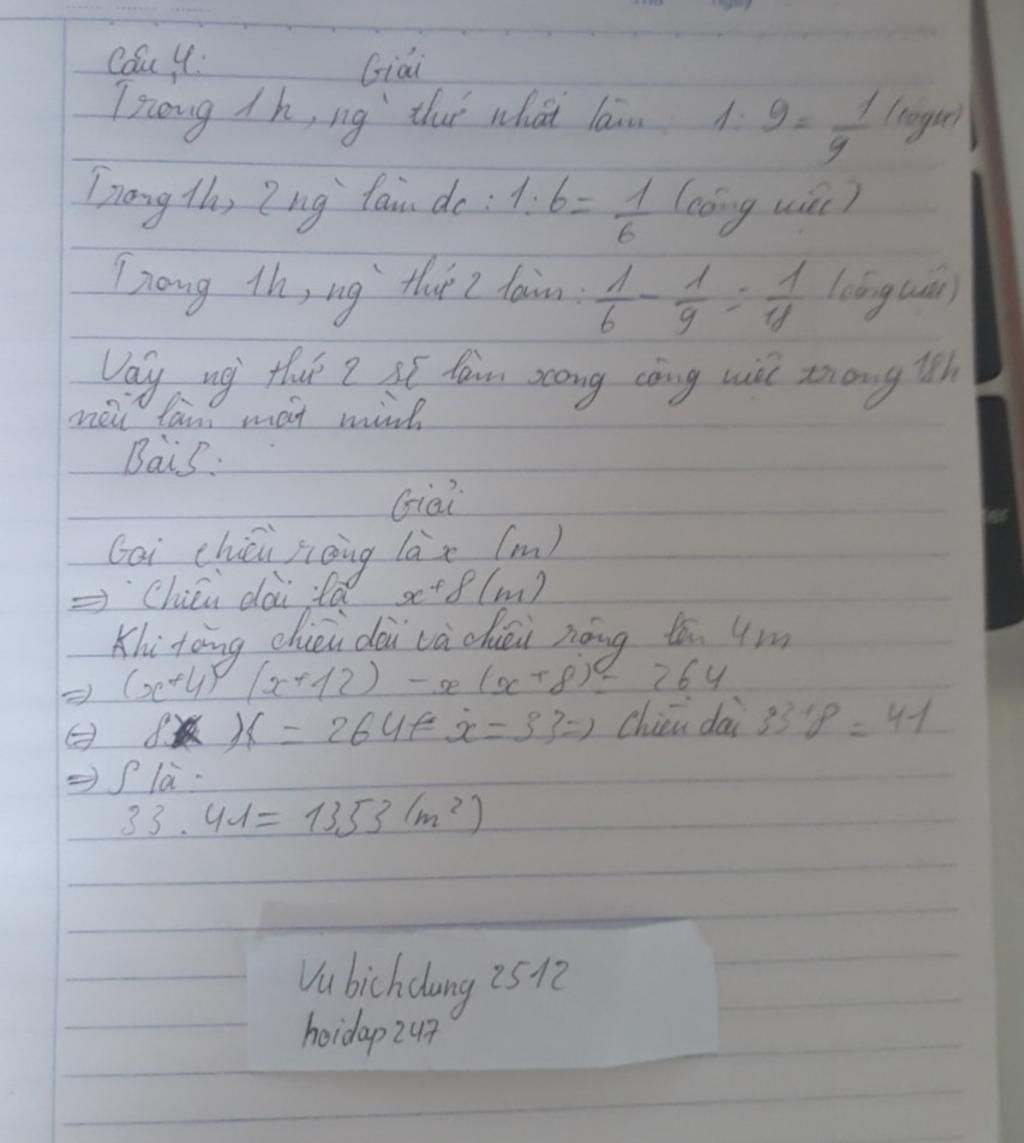 Câu 4: Giải
Trong 1h, ng` thứ nhất làm: 1:9 = 1/9 (côgviệc)
Trong 1h, 2 ng` làm dc: 1:6 = 1/6 (công việc)
Trong 1h, ng` thứ 2 làm: 1/6 - 1/9 = 1/18 (công việc)
Vậy ng` thứ 2 sẽ làm xong công việc trong 18h
nếu làm một mình
Bài 5:
Giải
Gọi chiều rộng là x (m)
=> Chiều dài là x+8 (m)
Khi tăng chiều dài và chiều rộng lên 4m
=> (x+4) (x+12) - x (x+8) = 264
<=> 8x = 264 <=> x = 33 => Chiều dài 33+8 = 41
=> S là:
33 . 41 = 1353 (m²)
Vubichdung 2512
hoidap247